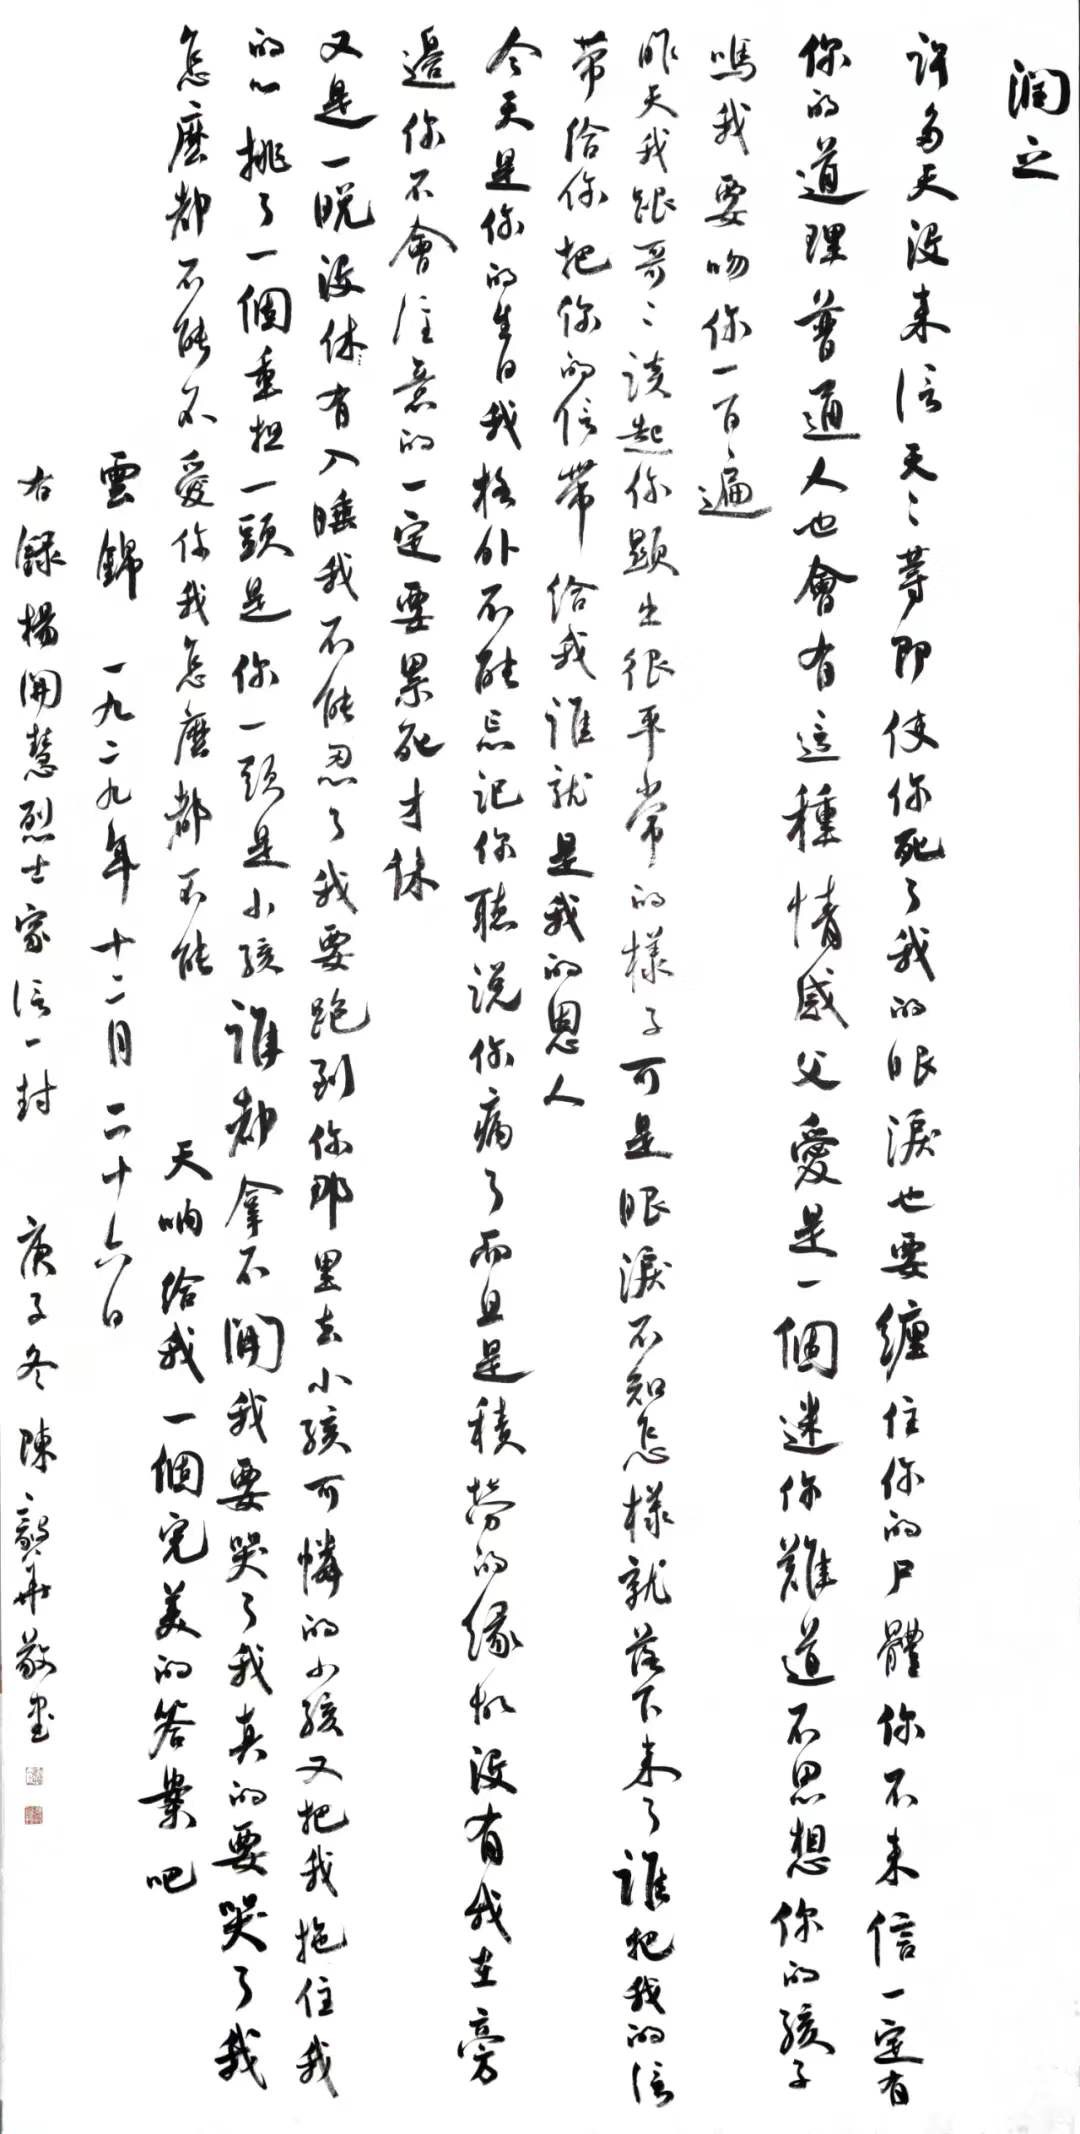 潤之
許多天没来信天天等即使你死了我的眼淚也要纏住你的尸體你不来信一定有
你的道理普通人也會有這種情感父愛是一個迷你難道不思想你的孩子
嗎我要吻你一百遍
昨天我跟哥哥談起你顯出很平常的樣子可是眼淚不知怎樣就落下来了誰把我的信
带给你把你的信带给我誰就是我的恩人
今天是你的生日我格外不能忘记你聽説你病了而且是積勞的缘故没有我在旁
邊你不會注意的一定要累死才休
又是一晚没休有入睡我不能忍了我要跑到你那里去小孩可憐的小孩又把我拖住我
的心挑了一個重担一頭是你一頭是小孩誰都拿不開我要哭了我真的要哭了我
怎麼都不能不愛你我怎麼都不能 天哟给我一個完美的答案吧
雲錦 一九二九年十二月二十六日
右録楊開慧烈士家信一封 庚子冬陳毅華敬書